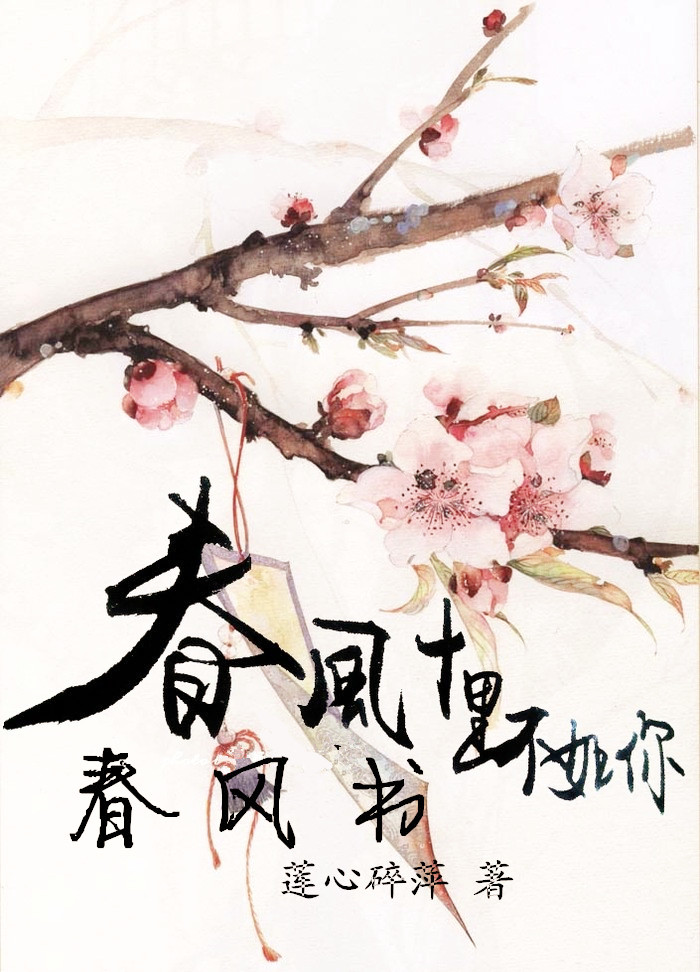 春風十里不如你
春风书
莲心碎萍 著